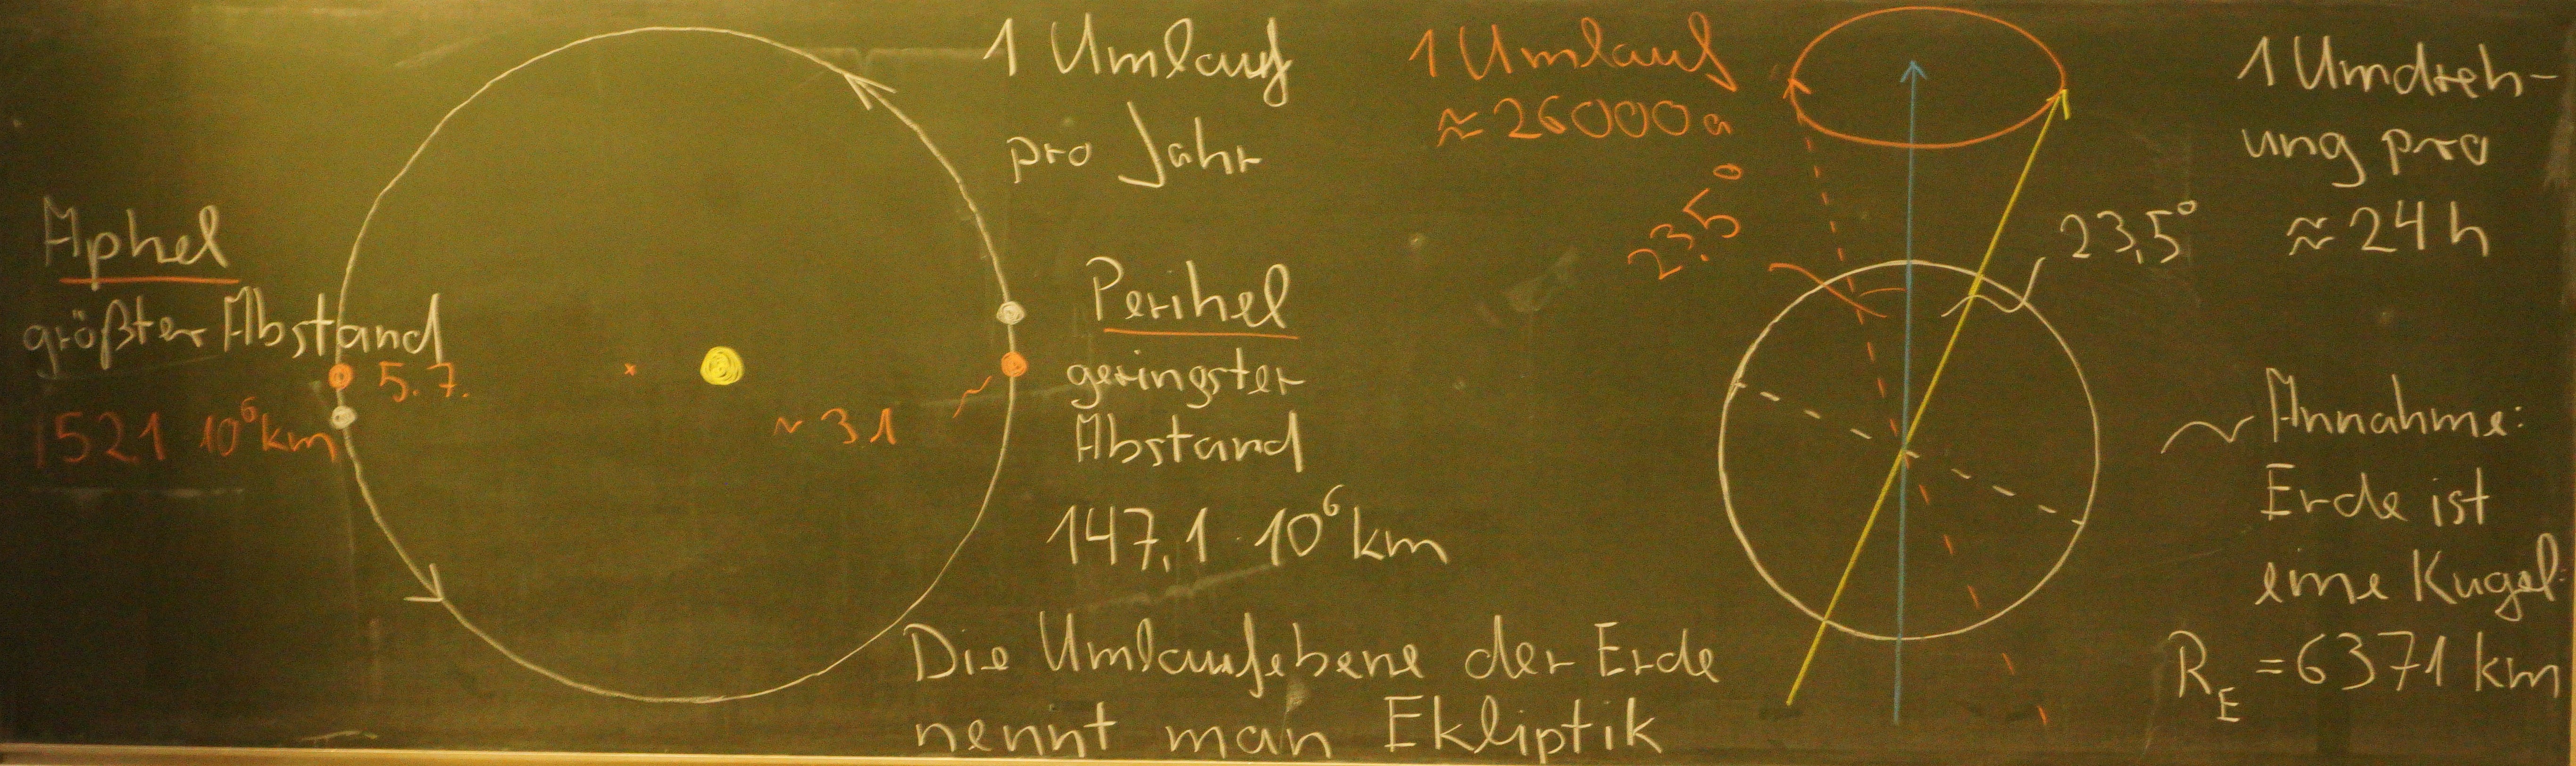 Aphel
größter Abstand
5.7.
1521 10⁶ km
~ 3 1
1 Umlauf
pro Jahr
Perihel
geringster
Abstand
147,1 · 10⁶ km
Die Umlaufebene der Erde
nennt man Ekliptik
1 Umlauf
≈ 26000 a
23,5°
23,5°
1 Umdreh-
ung pro
≈ 24 h
Annahme:
Erde ist
eine Kugel
R_E = 6371 km